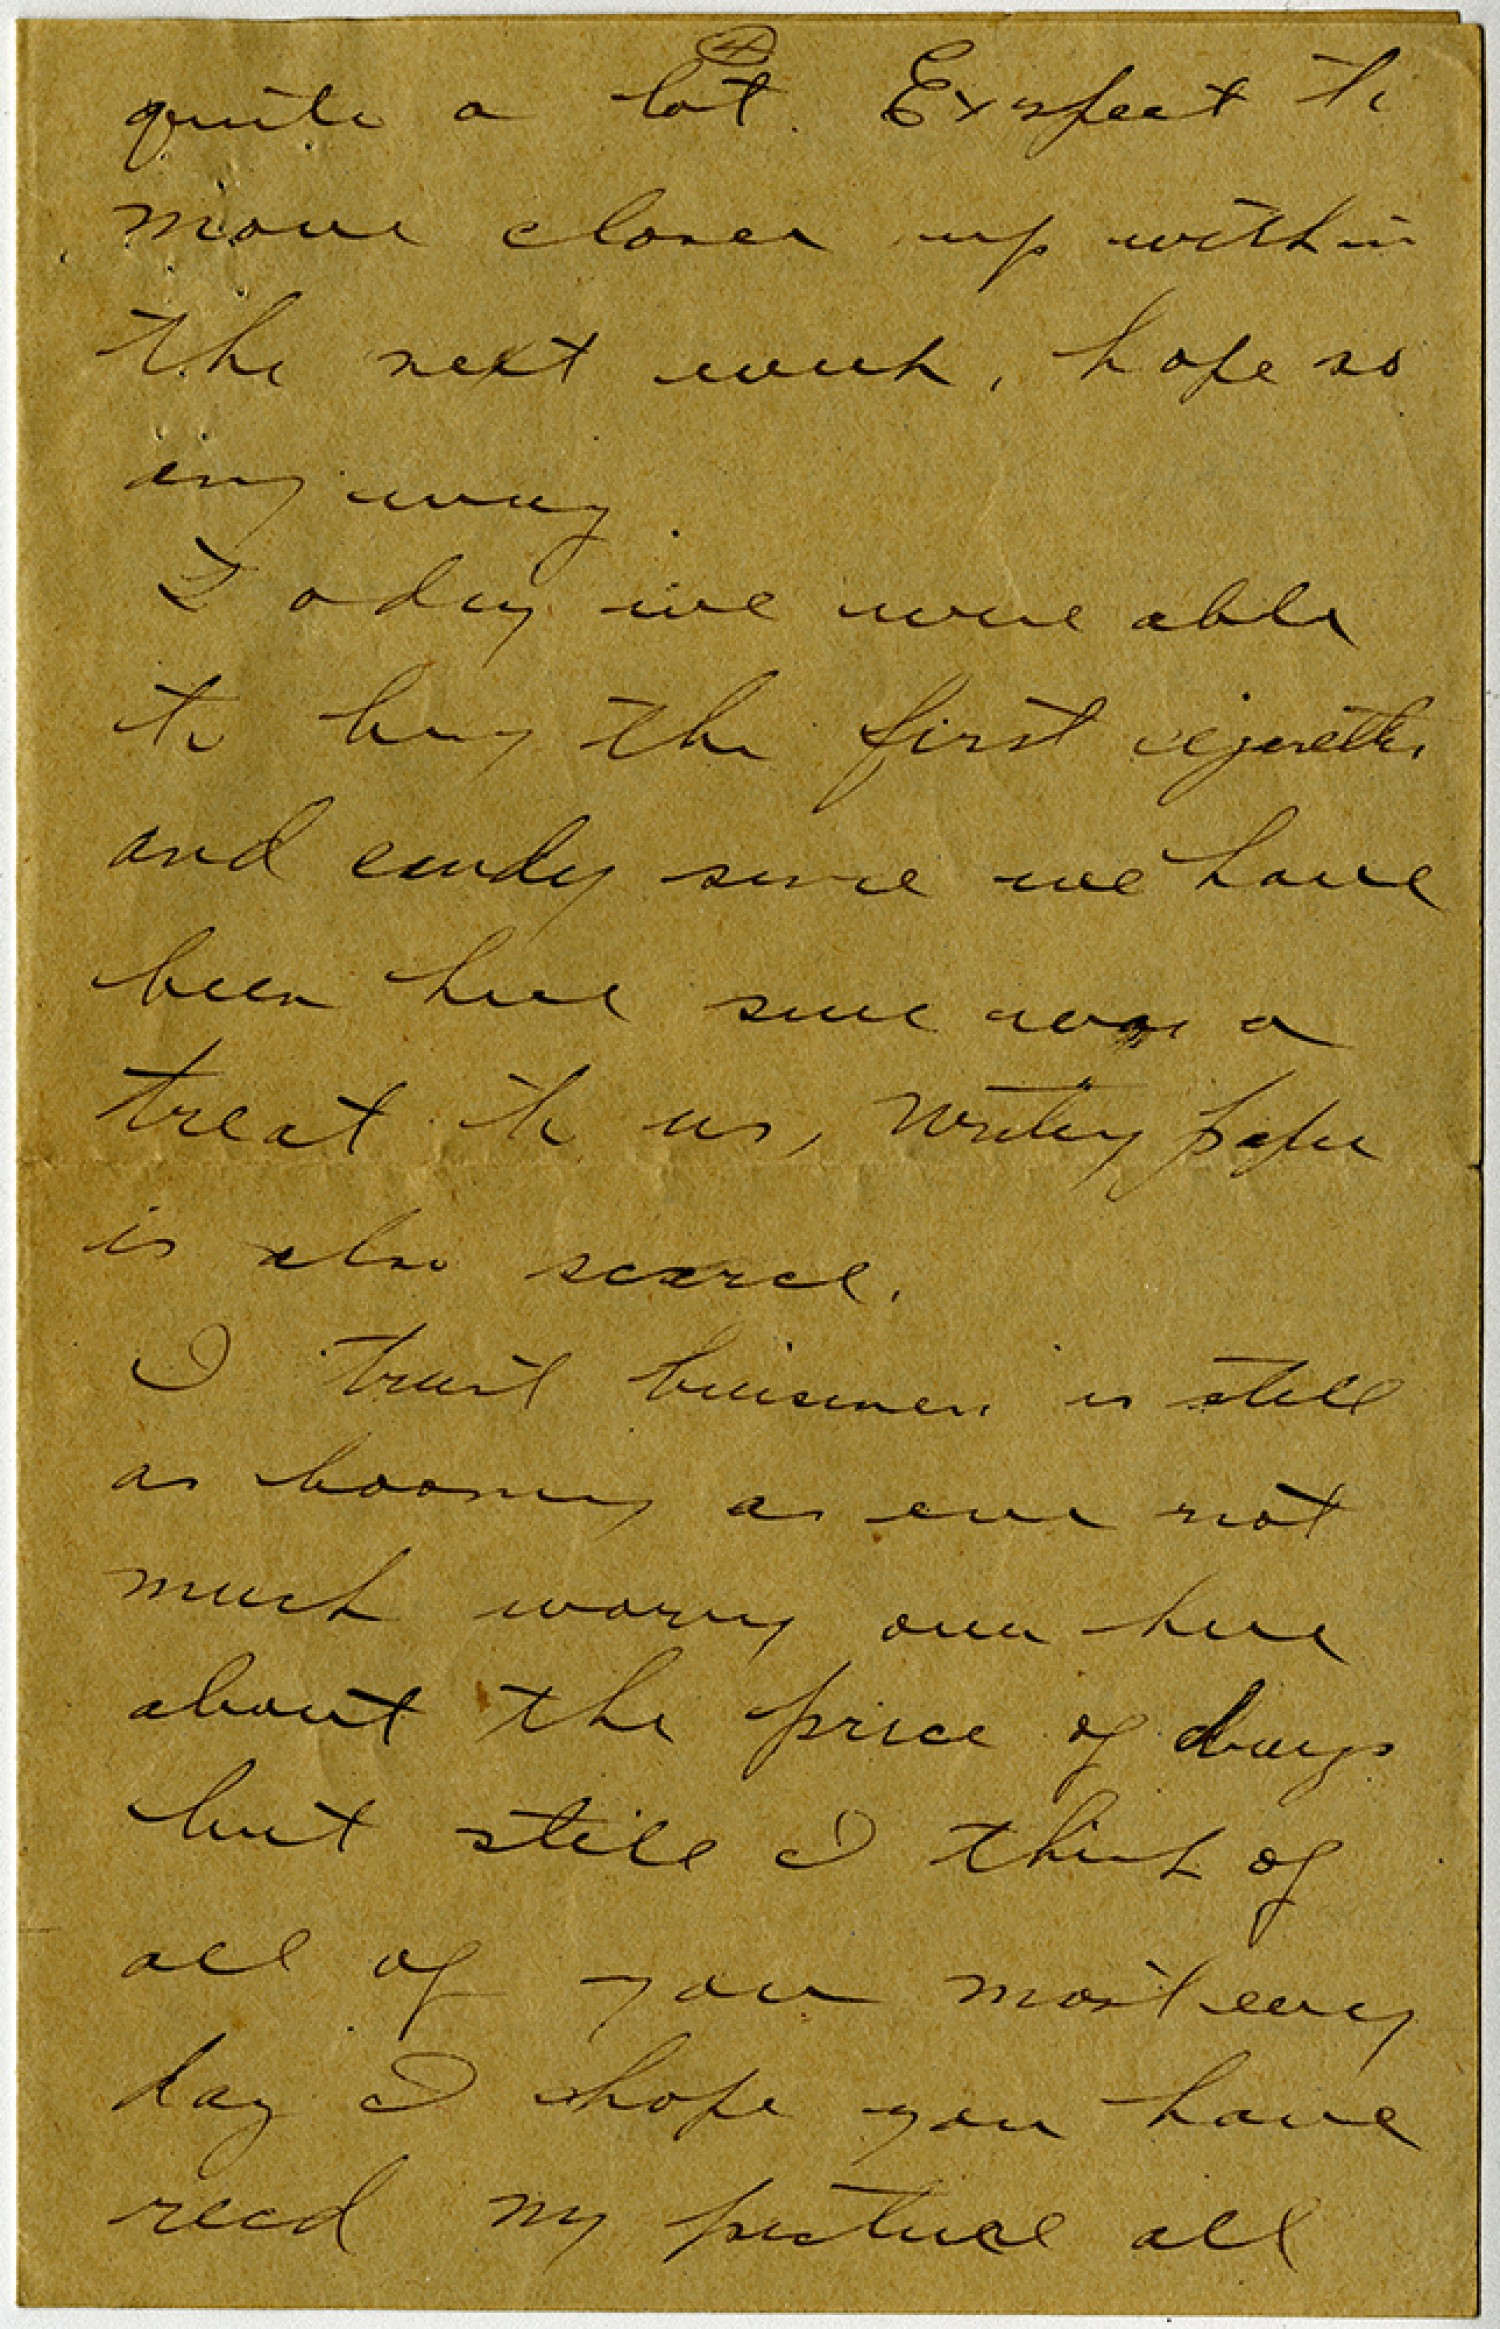 4
quite a lot. Expect to
move closer up within
the next week, hope so
any way.
Today we were able
to buy the first cigarettes
and candy since we have
been here sure was a
treat to us, Writing paper
is also scarce.
I trust buisiness is still
as booming as ever not
much worry over here
about the price of drugs
but still I think of
all of you most every
day I hope you have
recd my picture all